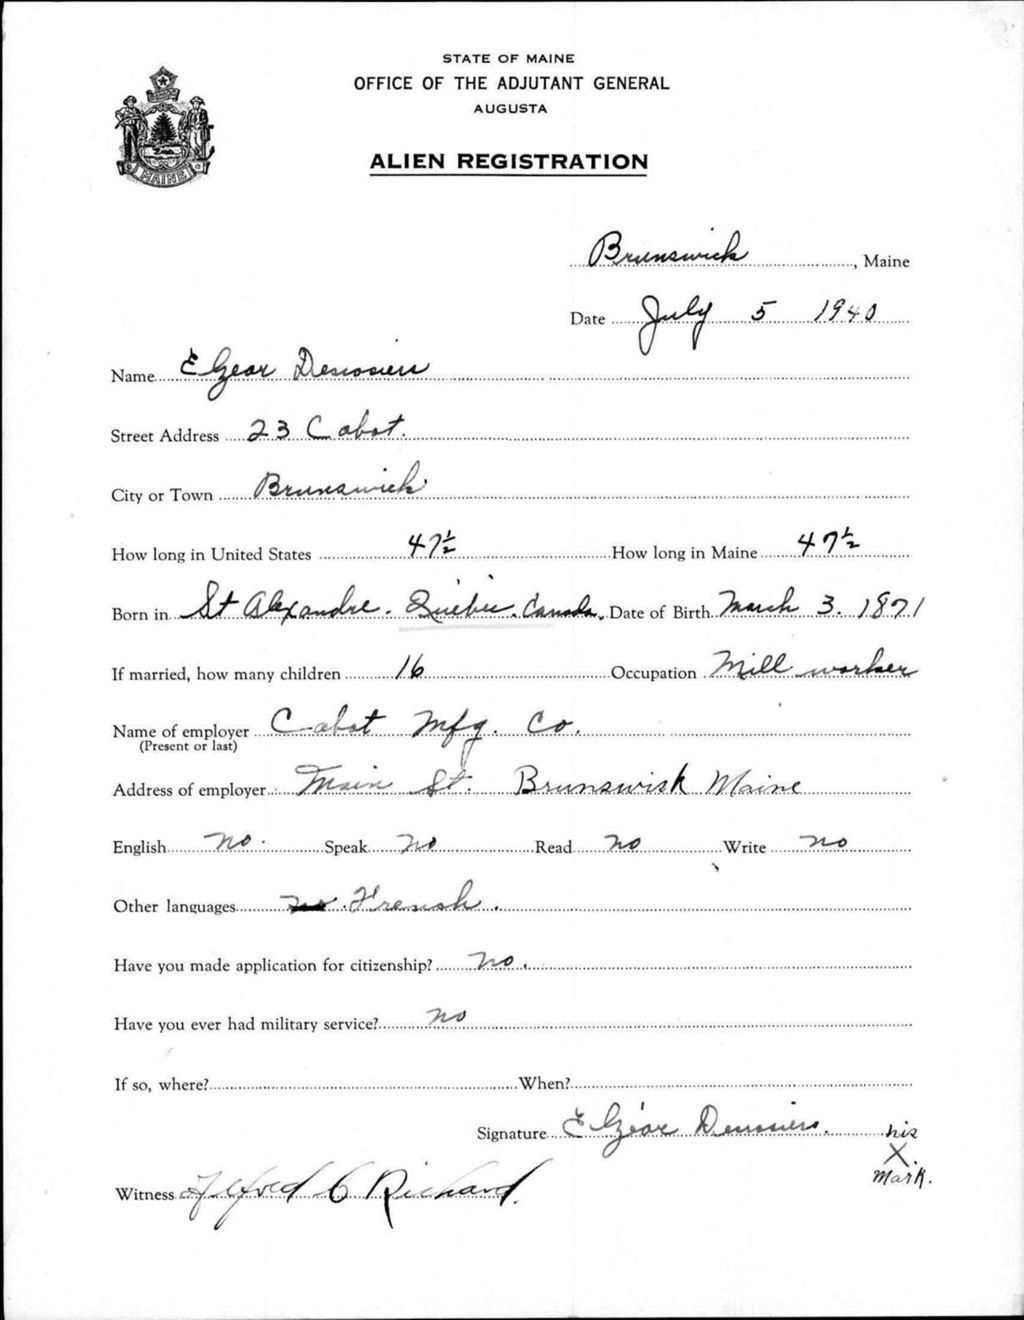 STATE OF MAINE
OFFICE OF THE ADJUTANT GENERAL
AUGUSTA
MAINE
ALIEN REGISTRATION
Brunswick, Maine
Date July 5 1940
Name Elzear Desrosiers
Street Address 23 Cabot.
City or Town Brunswick
How long in United States 47½ How long in Maine 47½
Born in St Alexandre. Quebec. Canada. Date of Birth March 3. 1871
If married, how many children 16 Occupation Mill worker
Name of employer Cabot Mfg. Co.
(Present or last)
Address of employer Main St. Brunswick Maine
English no. Speak no Read no Write no
Other languages French.
Have you made application for citizenship? no.
Have you ever had military service? no
If so, where? When?
Signature Elzéar Desrosiers. his
X
mark.
Witness Alfred C Richard.